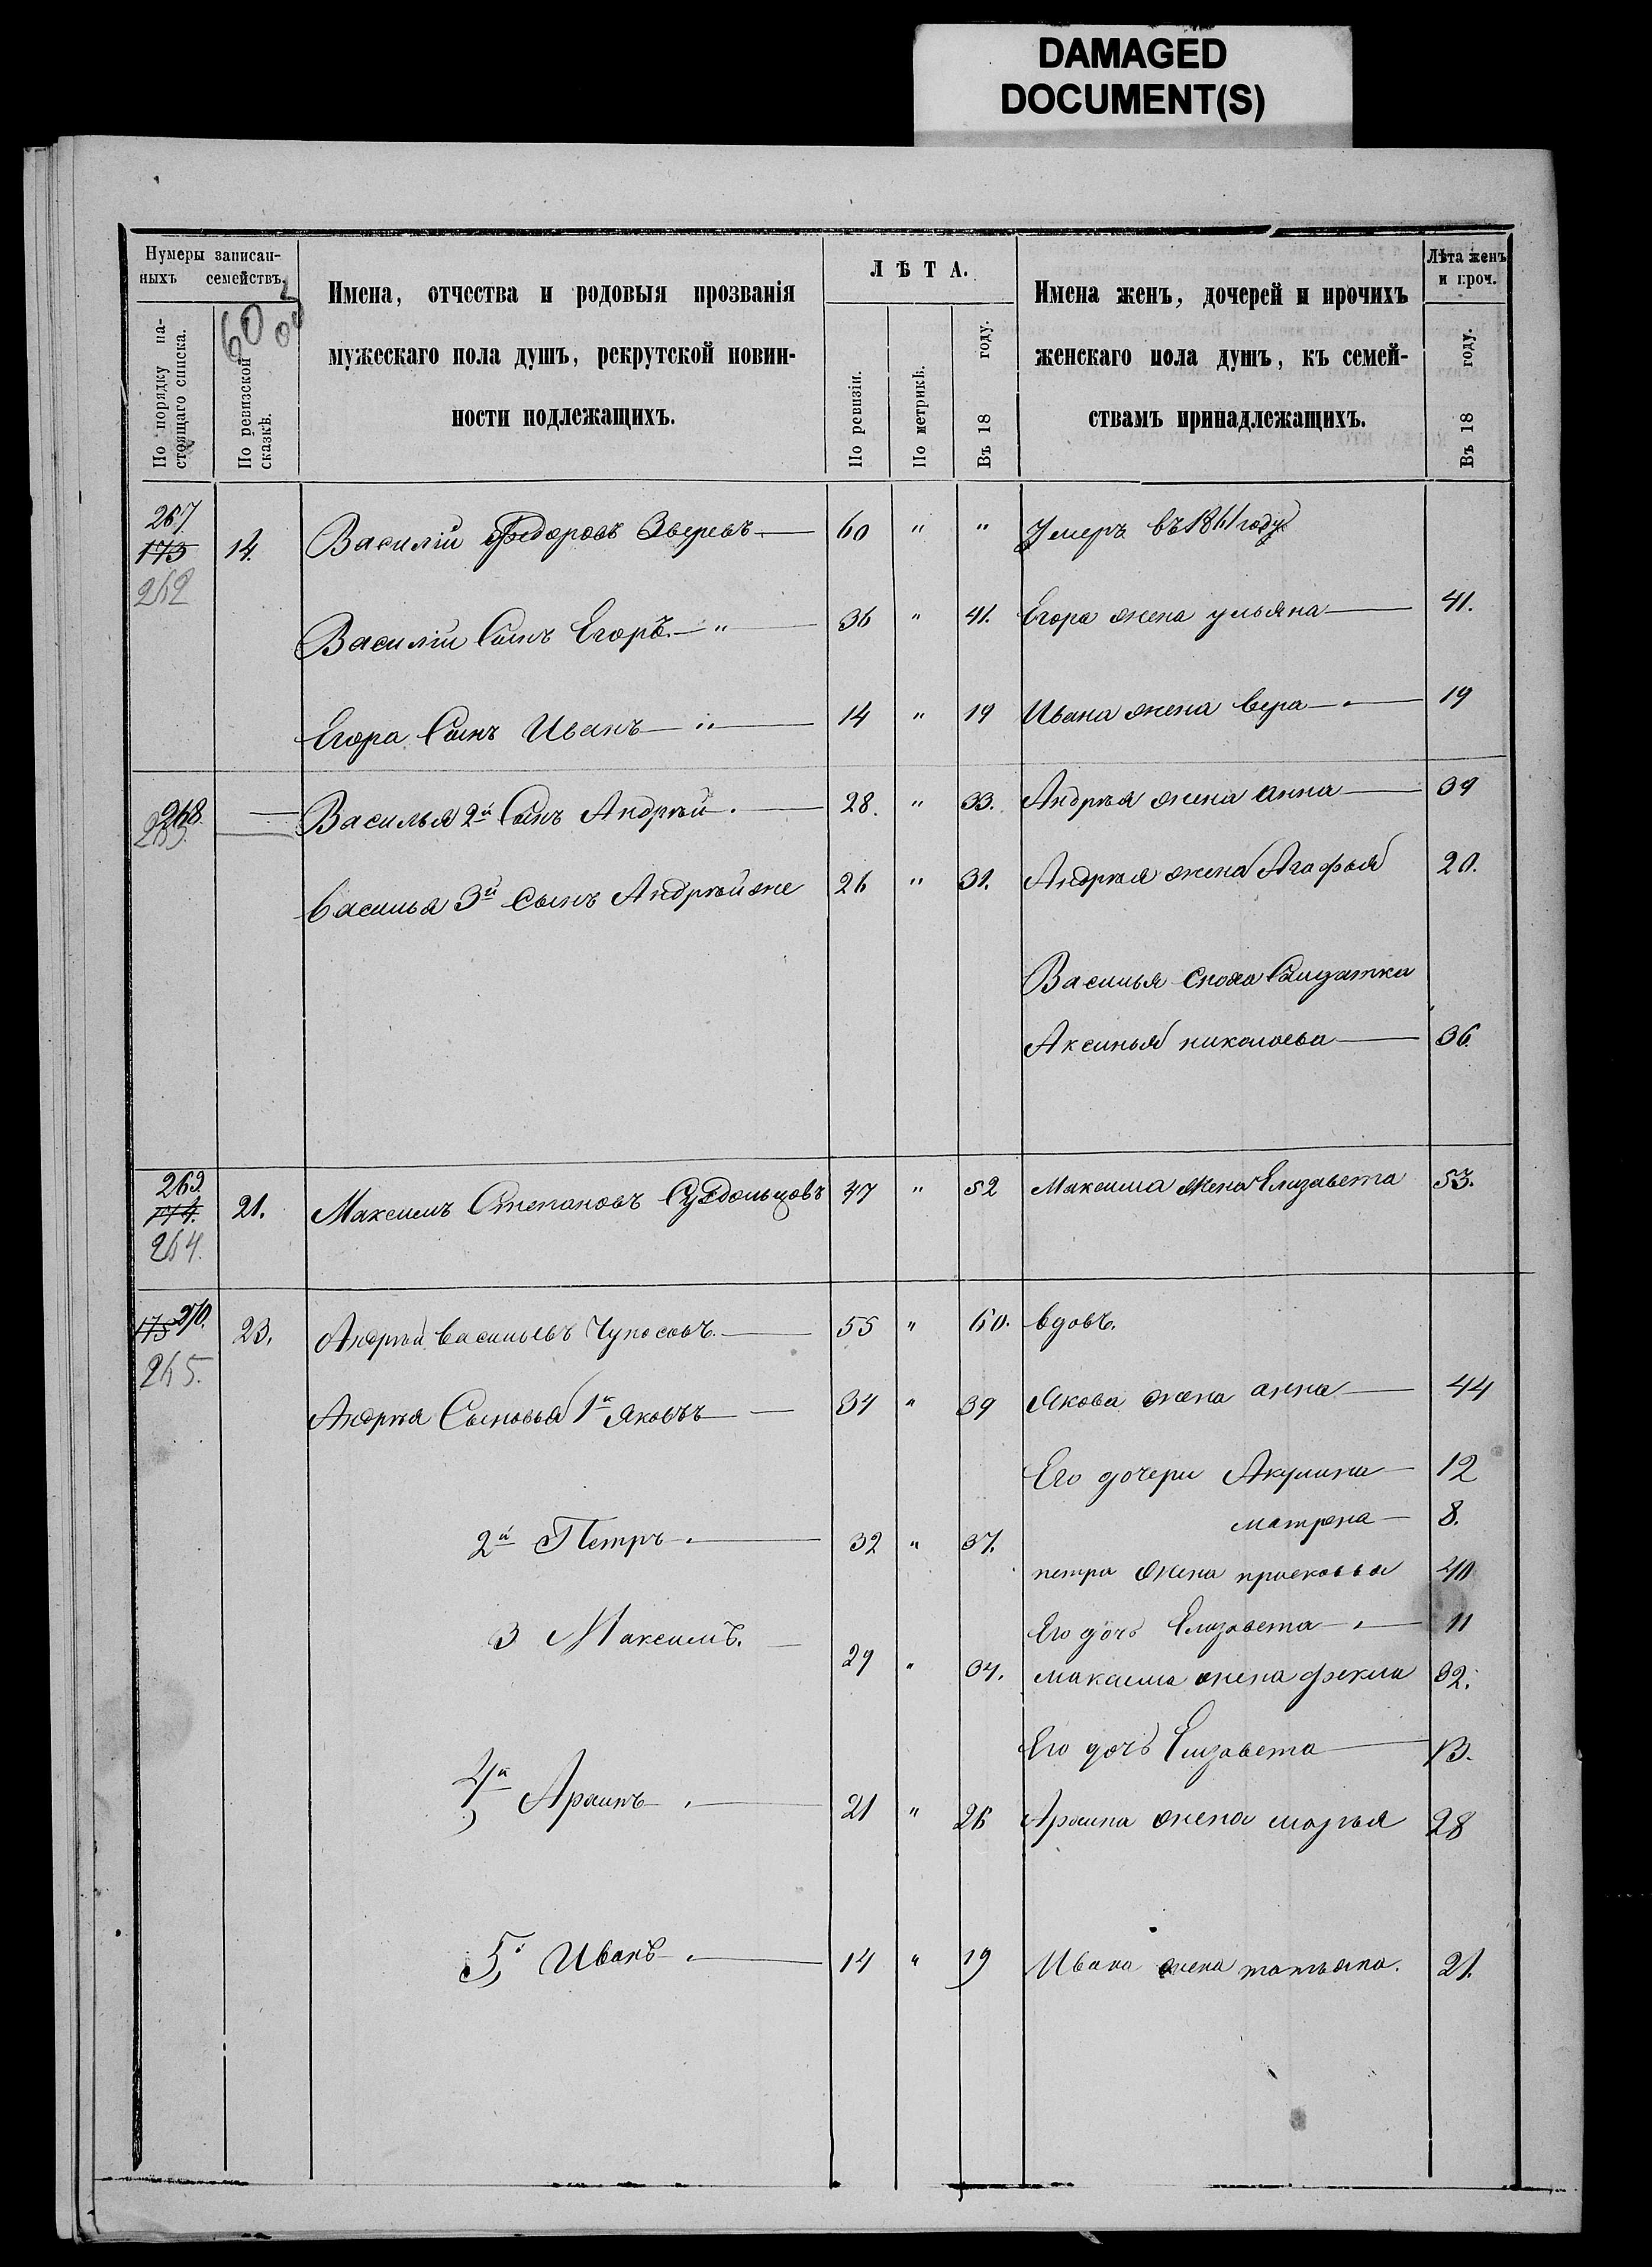 DAMAGED
DOCUMENT(S)
Нумеры записан-
ныхъ семействъ.
По порядку на-
стоящаго списка.
По ревизской
сказкѣ.
60
Имена, отчества и родовыя прозванія
мужескаго пола душъ, рекрутской повин-
ности подлежащихъ.
ЛѢТА.
По ревизіи.
По метрикѣ.
Въ 18 году.
Имена женъ, дочерей и прочихъ
женскаго пола душъ, къ семей-
ствамъ принадлежащихъ.
Лѣта женъ
и проч.
Въ 18 году.
267
173 14. Василій Федоровъ Зверевъ 60 " " Умеръ въ 1861 году
262
Василіи Сынъ Егоръ. " 36 " 41. Егора жена ульяна 41.
Егора Сынъ Иванъ " 14 " 19 Ивана жена вера 19
268. Василья 2й Сынъ Андрѣй. 28. " 33. Андрѣя жена анна 39
263.
василья 3й Сынъ Андрѣй же 26 " 31. Андрѣя жена Агафья 20.
Василья сноха Салдатка
Аксинья николаева 36.
269.
174. 21. Максимъ Степановъ 47 " 52 Максима жена Елизавета 53.
264.
270.
175 23. Андрѣй васильевъ Чуносовъ. 55 " 60. вдовъ.
265.
Андрѣя Сыновья 1й Яковъ 34 " 39 Якова жена анна 44
Его дочери Акулина 12
матрена 8.
2й Петръ 32 " 37.
петра жена прасковья 40
3 Максимъ. 29 " 34.
Его дочь Елизавета 11
максима жена фекла 32.
Его дочь Елизавета 13.
4й 21 " 26 жена марья 28
5, Иванъ 14 " 19 Ивана жена татьяна. 21.